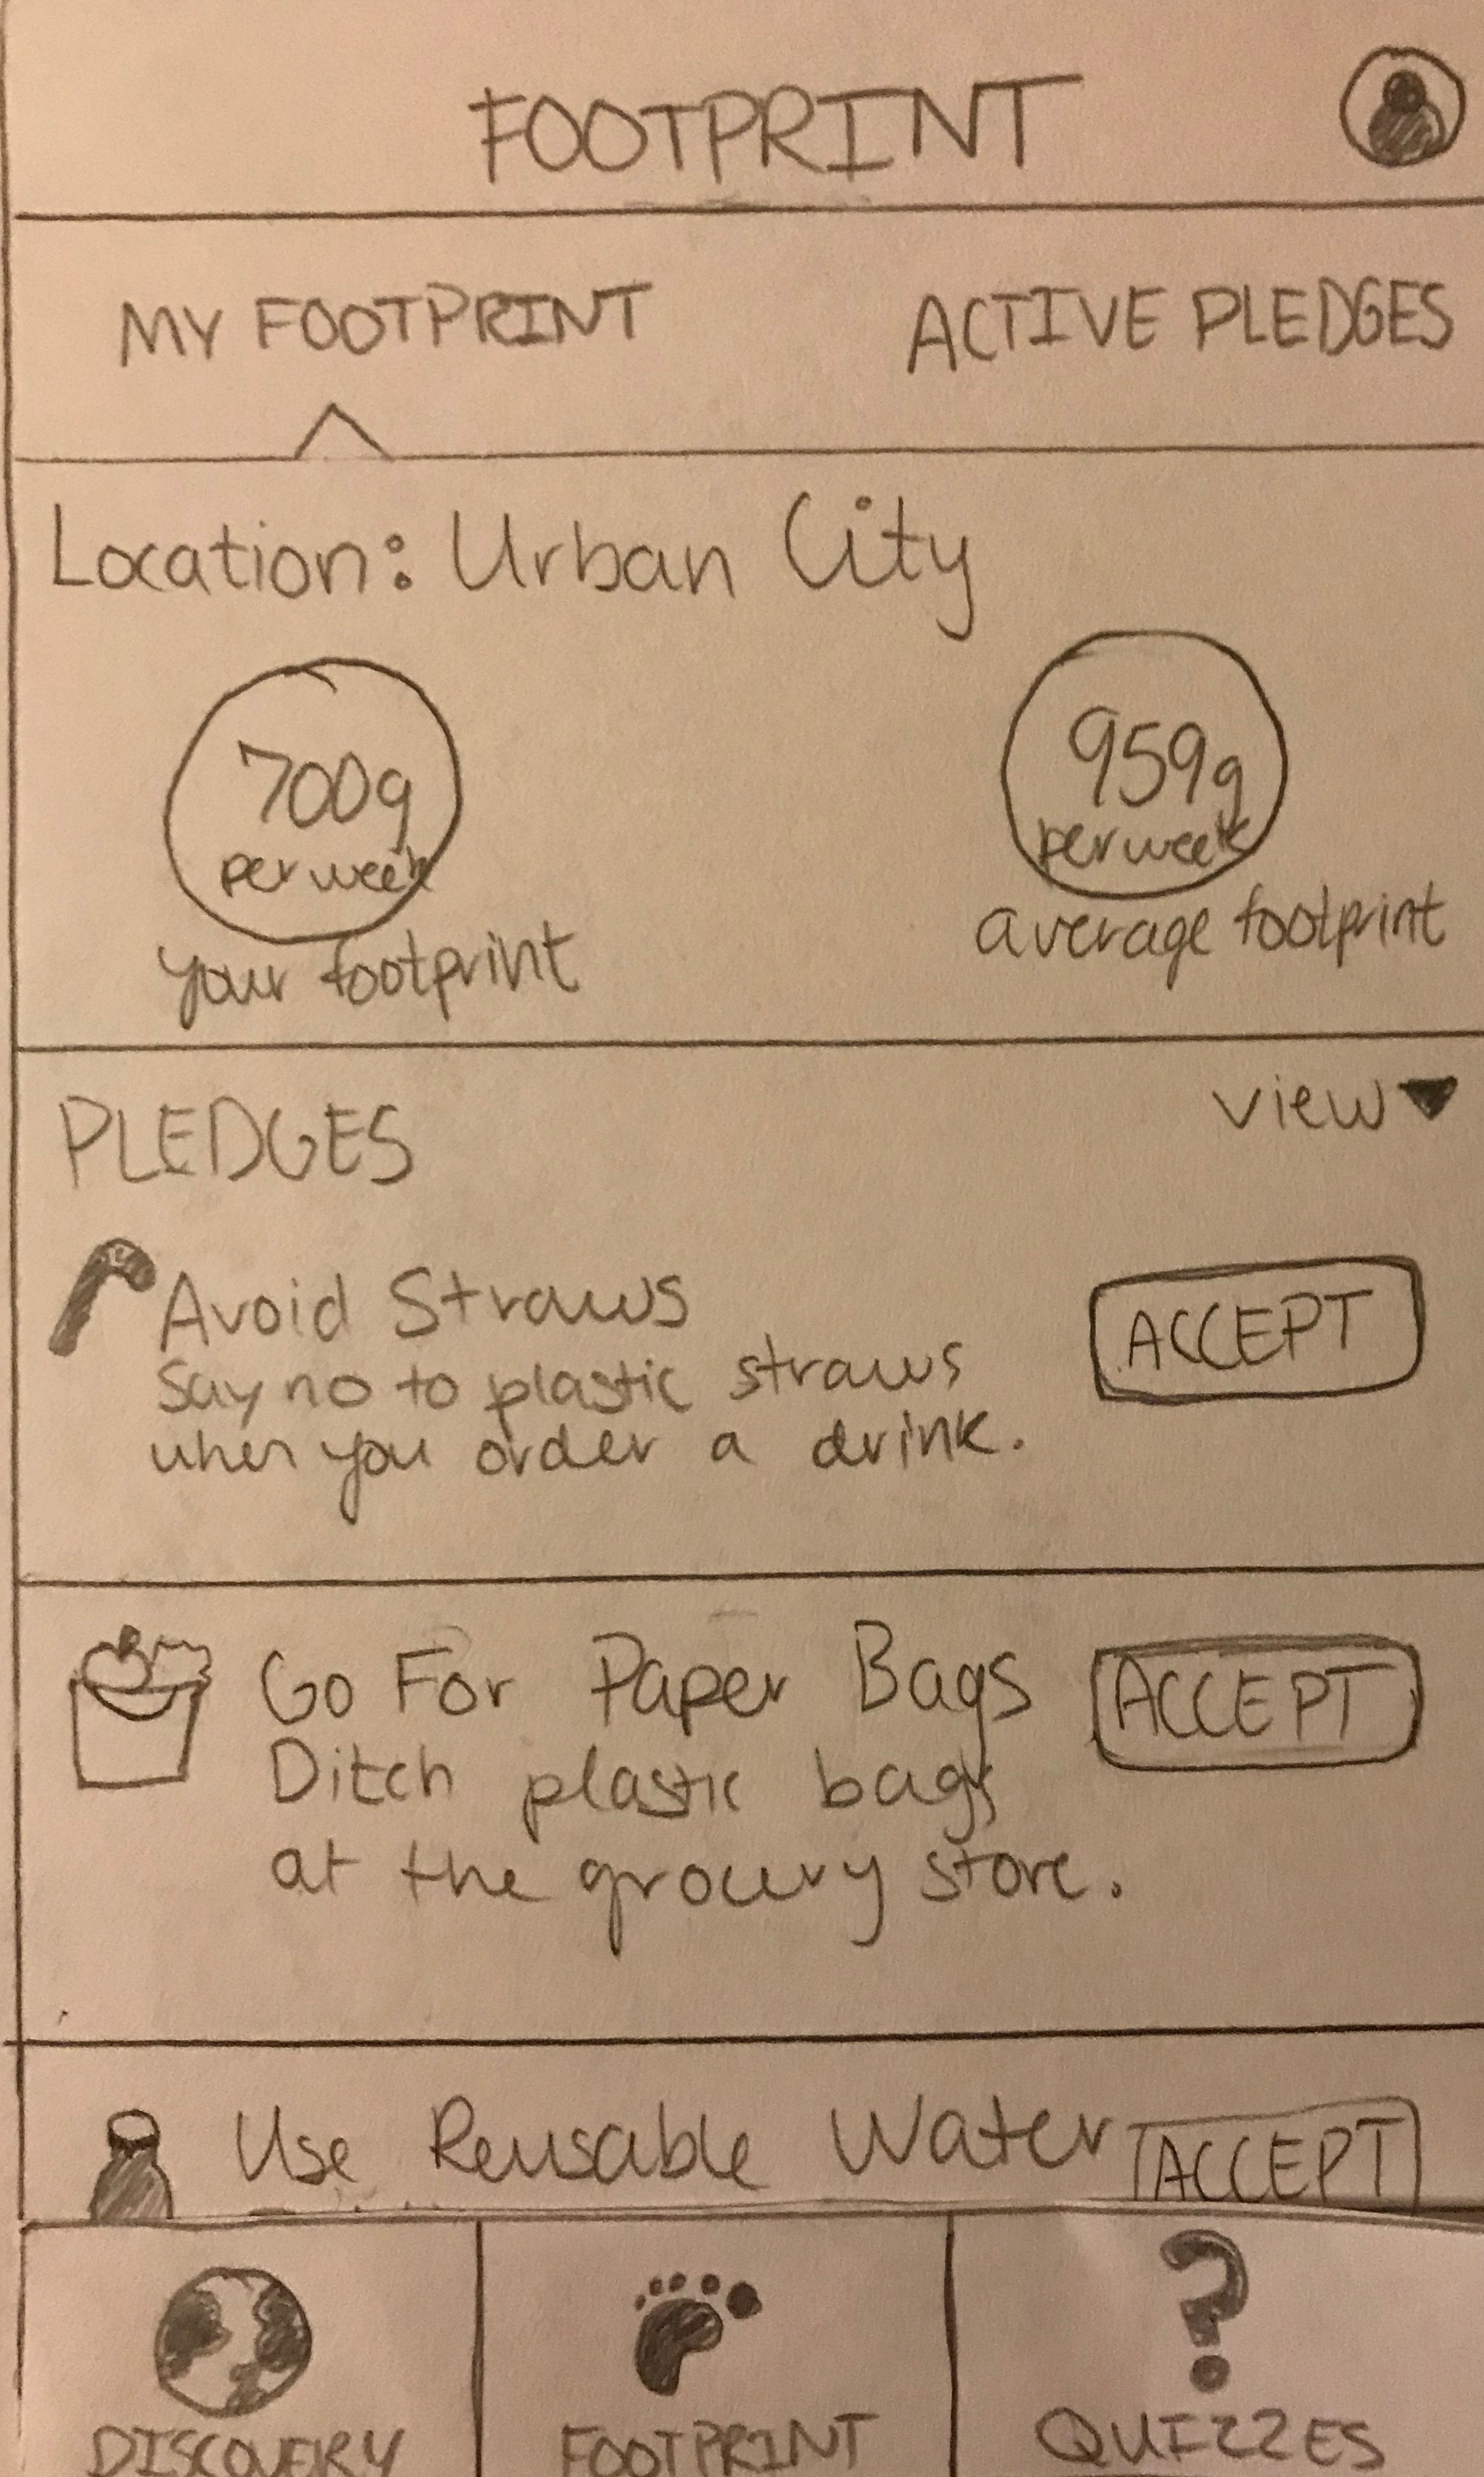 FOOTPRINT
MY FOOTPRINT ACTIVE PLEDGES
Location: Urban City
700g
per week
your footprint
959g
per week
average footprint
PLEDGES view
Avoid Straws ACCEPT
Say no to plastic straws
when you order a drink.
Go For Paper Bags ACCEPT
Ditch plastic bags
at the grocery store.
Use Reusable Water ACCEPT
DISCOVERY FOOTPRINT QUIZZES